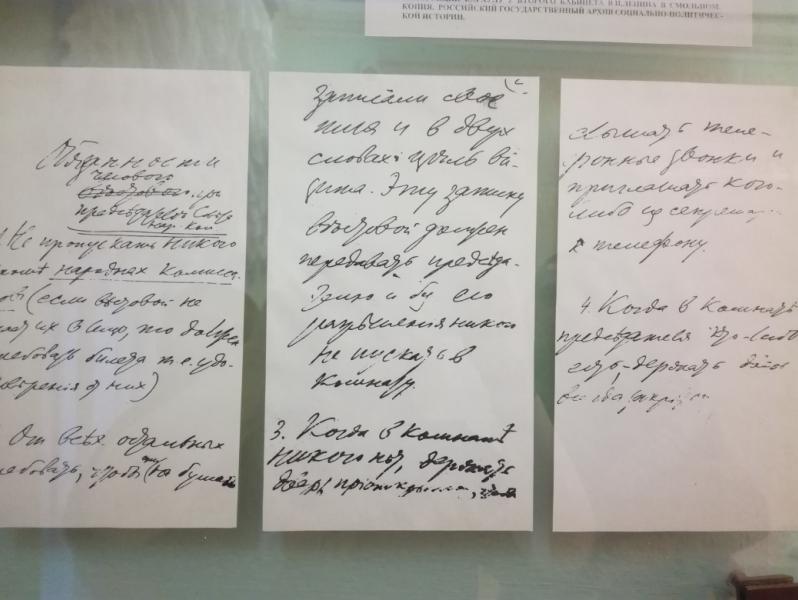 КАРАУЛУ У ВТОРОГО КАБИНЕТА В.И.ЛЕНИНА В СМОЛЬНОМ.
КОПИЯ. РОССИЙСКИЙ ГОСУДАРСТВЕННЫЙ АРХИВ СОЦИАЛЬНО-ПОЛИТИЧЕС-
КОЙ ИСТОРИИ.
Обязанности
часового при
председателе Сов
нар. ком
1. Не пропускать никого
кроме народных комисса-
ров (если вестовой не
знает их в лицо, то должен
требовать билеты т. е. удо-
стоверения от них)
От всѣх остальных
требовать, чтобы они на бумаге
записали свое
имя и в двух
словах цѣль ви-
зита. Эту записку
вестовой должен
передавать председа-
телю и без его
разрешения никого
не пускать в
комнату.
3. Когда в комнатѣ
никого нет, держать
дверь приоткрытой, чтобы
слышать теле-
фонные звонки и
приглашать кого-
либо из секретарей
к телефону.
4. Когда в комнатѣ
председателя кто-либо
есть, держать дверь
всегда закрытой